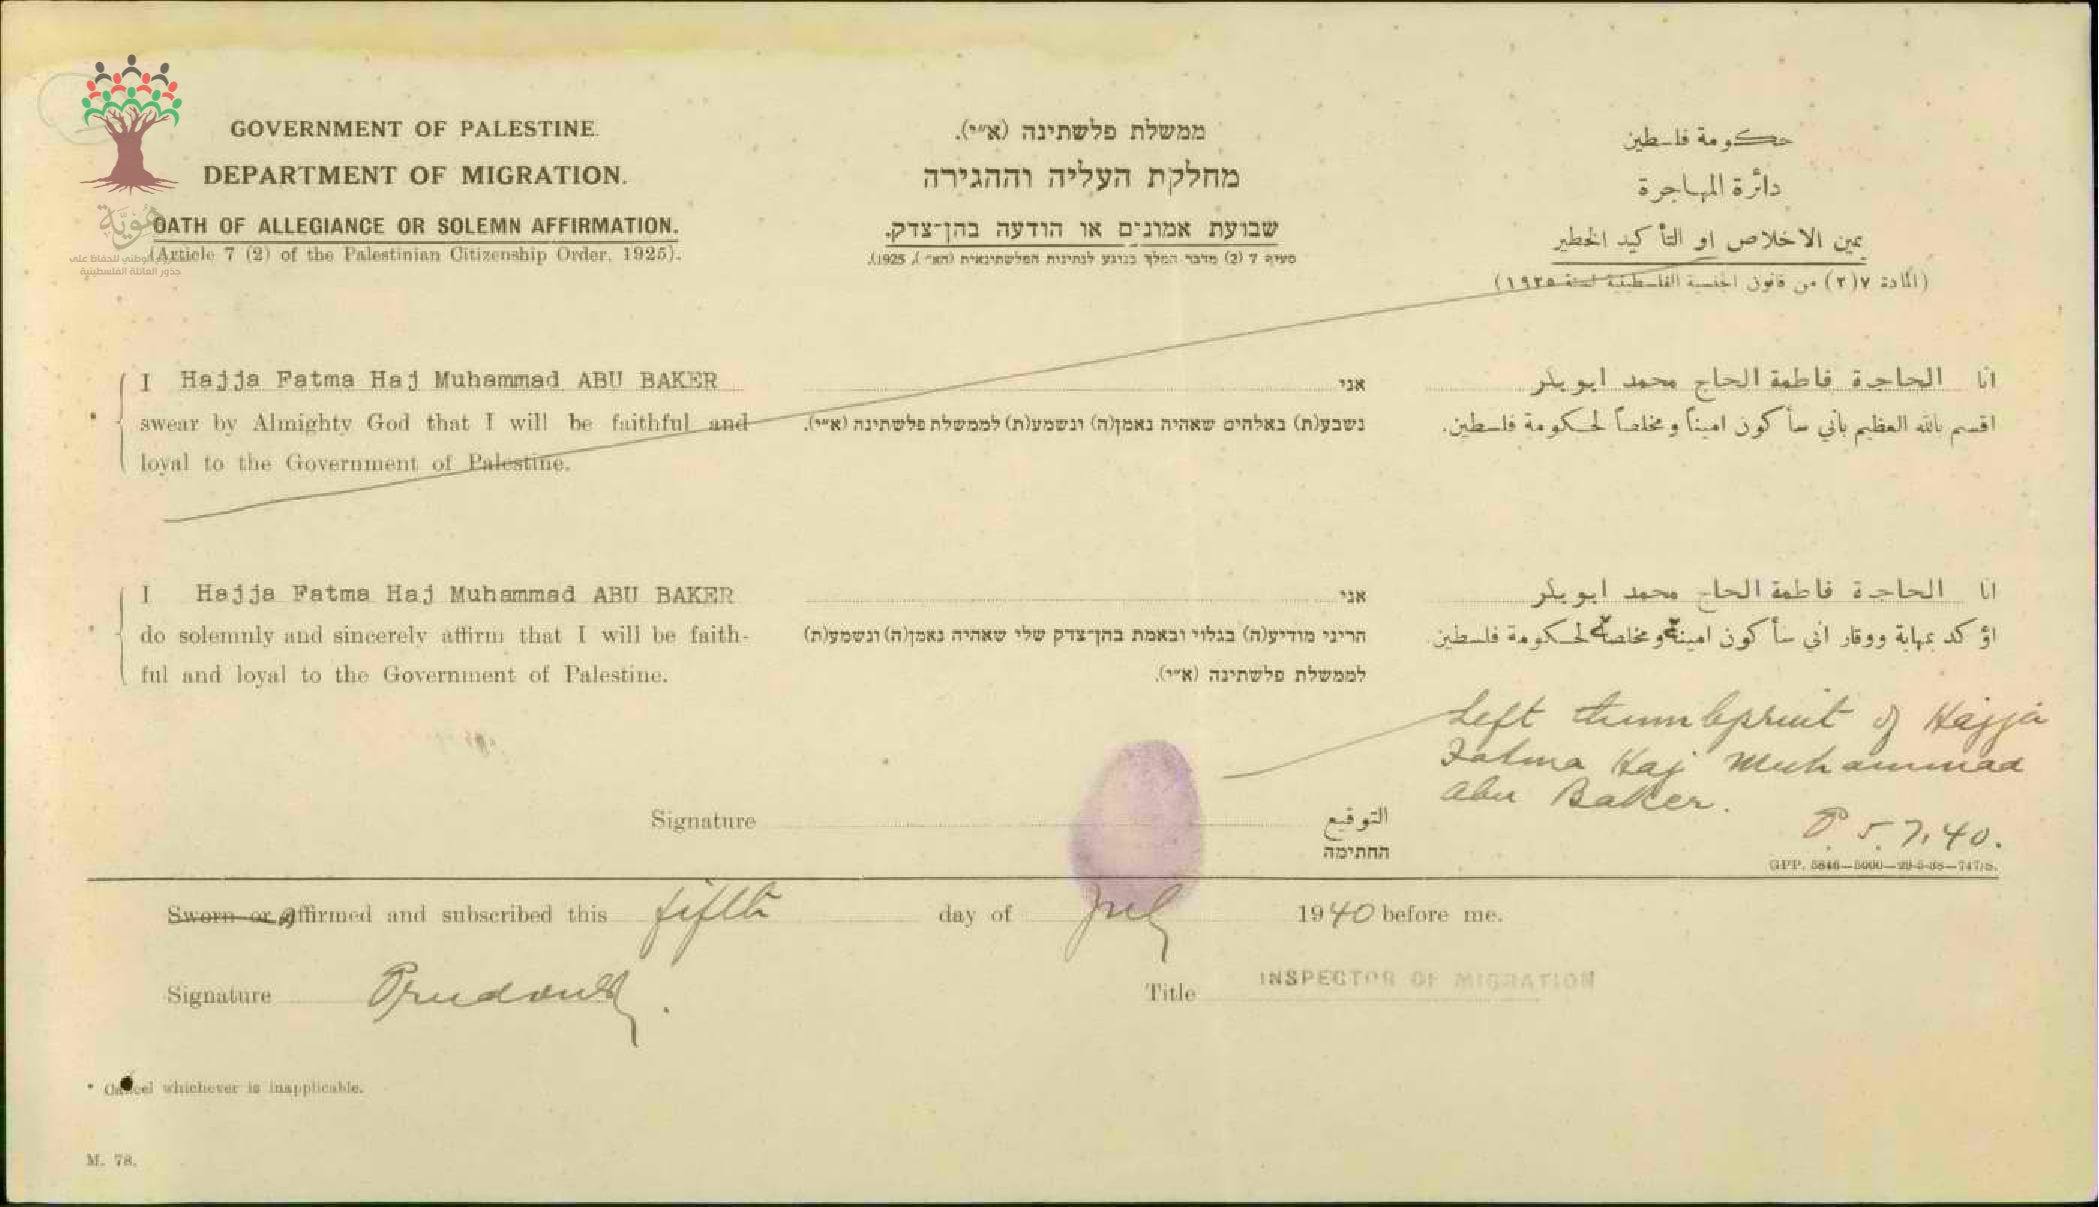 GOVERNMENT OF PALESTINE.
DEPARTMENT OF MIGRATION.
OATH OF ALLEGIANCE OR SOLEMN AFFIRMATION.
(Article 7 (2) of the Palestinian Citizenship Order, 1925).
ממשלת פלשתינה (א״י).
מחלקת העליה וההגירה
שבועת אמונים או הודעה בהן־צדק.
סעיף 7 (2) מדבר המלך בנוגע לנתינות הפלשתינאית (הא״י), 1925).
حكومة فلسطين
دائرة المهاجرة
يمين الاخلاص او التأكيد الخطير
(المادة ٧(٢) من قانون الجنسية الفلسطينية لسنة ١٩٢٥)
هُويَّة
الوطني للحفاظ على
جذور العائلة الفلسطينية
* I Hajja Fatma Haj Muhammad ABU BAKER
swear by Almighty God that I will be faithful and
loyal to the Government of Palestine.
אני
נשבע(ת) באלהים שאהיה נאמן(ה) ונשמע(ת) לממשלת פלשתינה (א״י).
انا الحاجة فاطمة الحاج محمد ابو بكر
اقسم بالله العظيم بأني سأكون اميناً ومخلصاً لحكومة فلسطين.
* I Hajja Fatma Haj Muhammad ABU BAKER
do solemnly and sincerely affirm that I will be faith-
ful and loyal to the Government of Palestine.
אני
הריני מודיע(ה) בגלוי ובאמת בהן־צדק שלי שאהיה נאמן(ה) ונשמע(ת)
לממשלת פלשתינה (א״י).
انا الحاجة فاطمة الحاج محمد ابو بكر
اؤكد بمهابة ووقار اني سأكون امينة ومخلصة لحكومة فلسطين.
Left thumbprint of Hajja
Fatma Haj Muhammad
Abu Baker.
P 5.7.40.
Signature
التوقيع
החתימה
GPP. 5846—5000—29-5-38—747/S.
Sworn or affirmed and subscribed this fifth day of July 1940 before me.
Signature
Title INSPECTOR OF MIGRATION
* Cancel whichever is inapplicable.
M. 78.